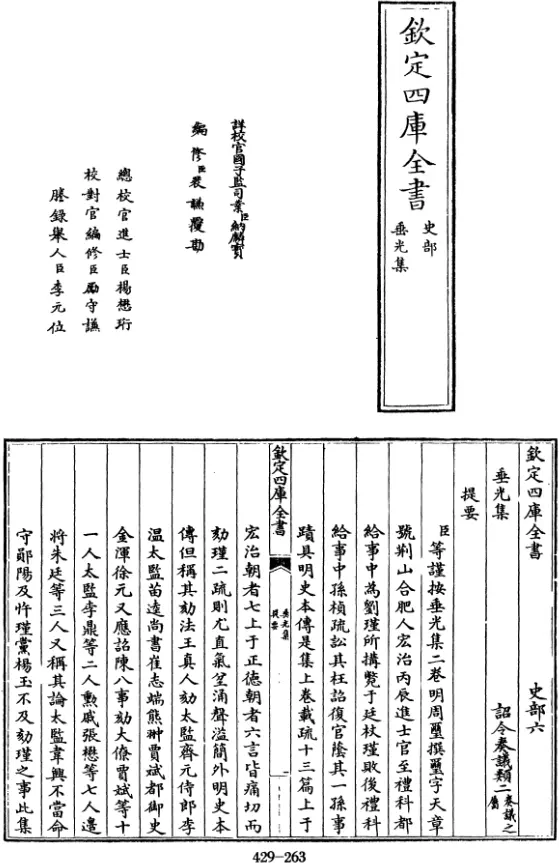 欽定四庫全書
史部
垂光集
詳校官國子監司業臣納麟寶
編修臣裴謙覆勘
總校官進士臣楊懋珩
校對官編修臣勵守謙
謄錄舉人臣李元位
欽定四庫全書 史部六
垂光集 詔令奏議類二奏議之屬
提要
臣等謹按垂光集二卷明周璽撰璽字天章
號荆山合肥人宏治丙辰進士官至禮科都
給事中為劉瑾所搆斃于廷杖瑾敗後禮科
給事中孫禎疏訟其枉詔復官蔭其一孫事
蹟具明史本傳是集上卷載疏十三篇上于
欽定四庫全書
垂光集
提要
宏治朝者七上于正德朝者六言皆痛切而
劾瑾二疏則尤直氣坌涌聲溢簡外明史本
傳但稱其劾法王真人劾太監齊元侍郎李
温太監苗逵尚書崔志端熊翀賈斌都御史
金渾徐元又應詔陳八事劾大僚賈斌等十
一人太監李鼎等二人勲戚張懋等七人邊
將朱廷等三人又稱其論太監韋興不當命
守鄖陽及忤瑾黨楊玉不及劾瑾之事此集
429-263